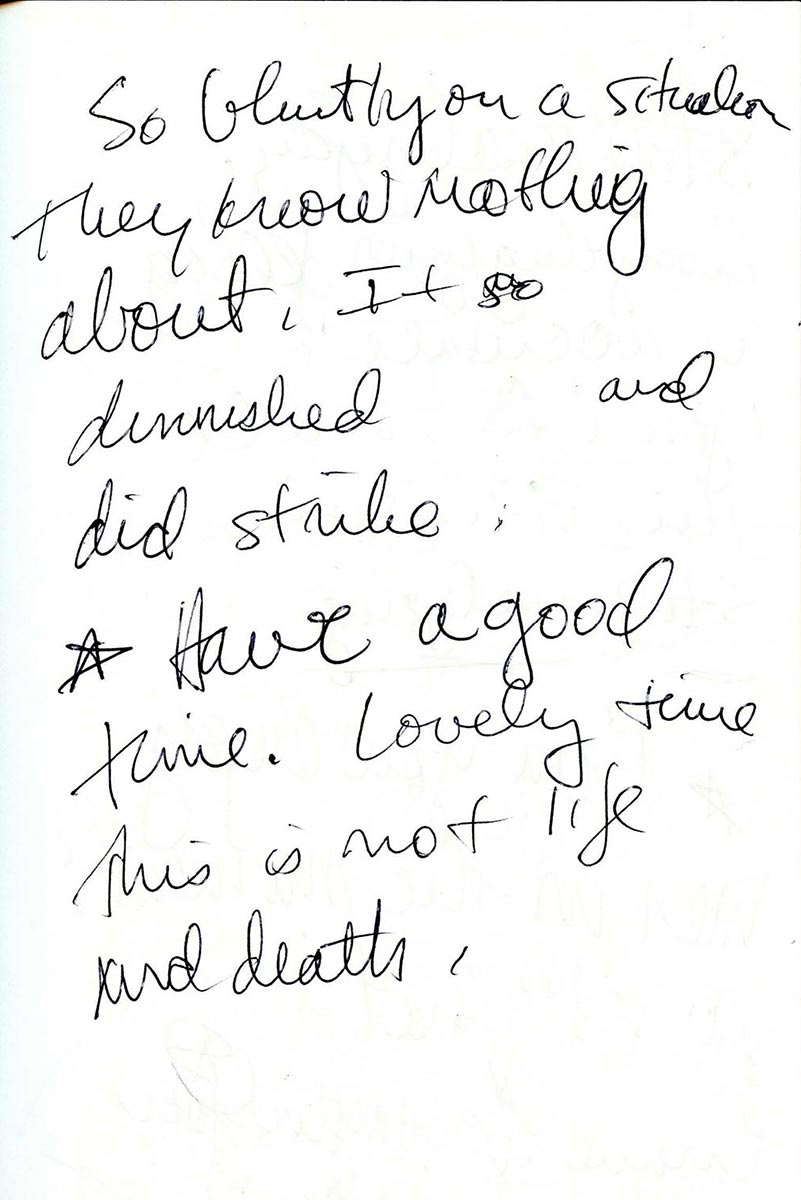 So bluntly on a situation
they know nothing
about. It so
diminished and
did strike.
☆ Have a good
time. Lovely time
this is not life
and death.